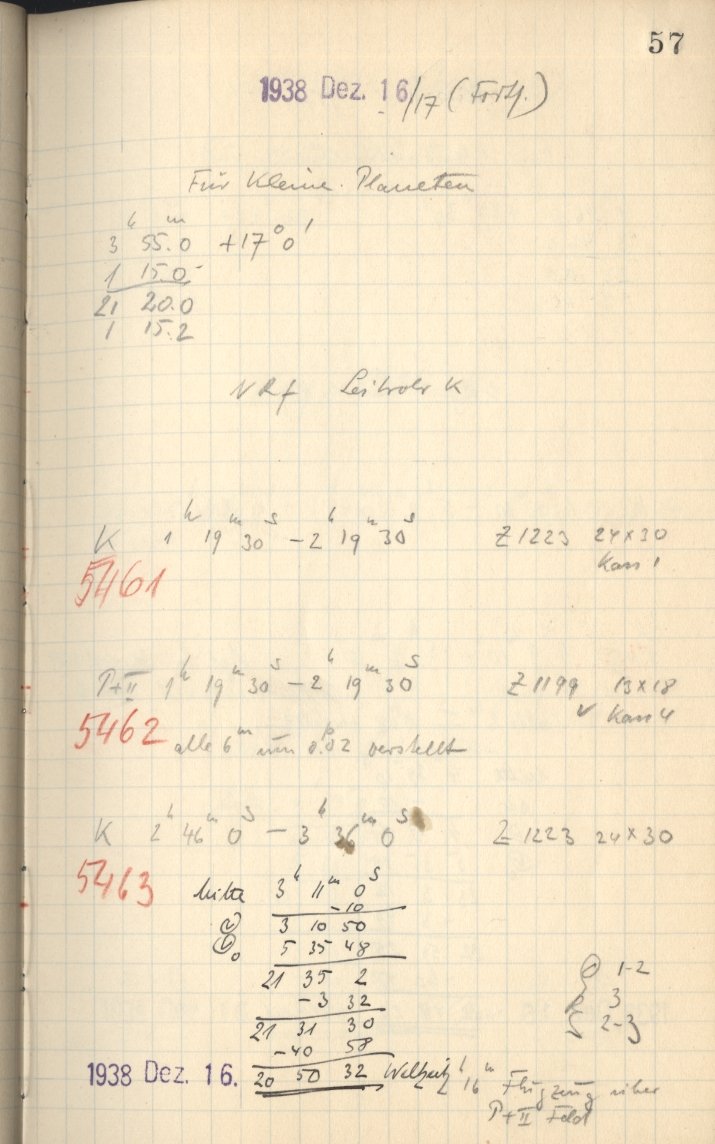 57
1938 Dez. 16/17 (Forts.)
Für Kleine Planeten
3h 55.m0 +17°0'
1 15.0
21 20.0
1 15.2
Leitrohr K
K 1h 19m 30s – 2h 19m 30s Z 1223 24×30
Kass 1
5461
P+II 1h 19m 30s – 2h 19m 30s Z 1199 13×18
Kass 4
5462 alle 6m um 0.p02 verstellt
K 2h 46m 0s – 3h 36m 0s Z 1223 24×30
5463 Mitte 3h 11m 0s
-10
3 10 50
5 35 48
21 35 2 1-2
-3 32 3
21 31 30 2-3
-40 58
1938 Dez. 16. 20 50 32 Weltzeit
2h 16m Flugzeug über
P+II Feld